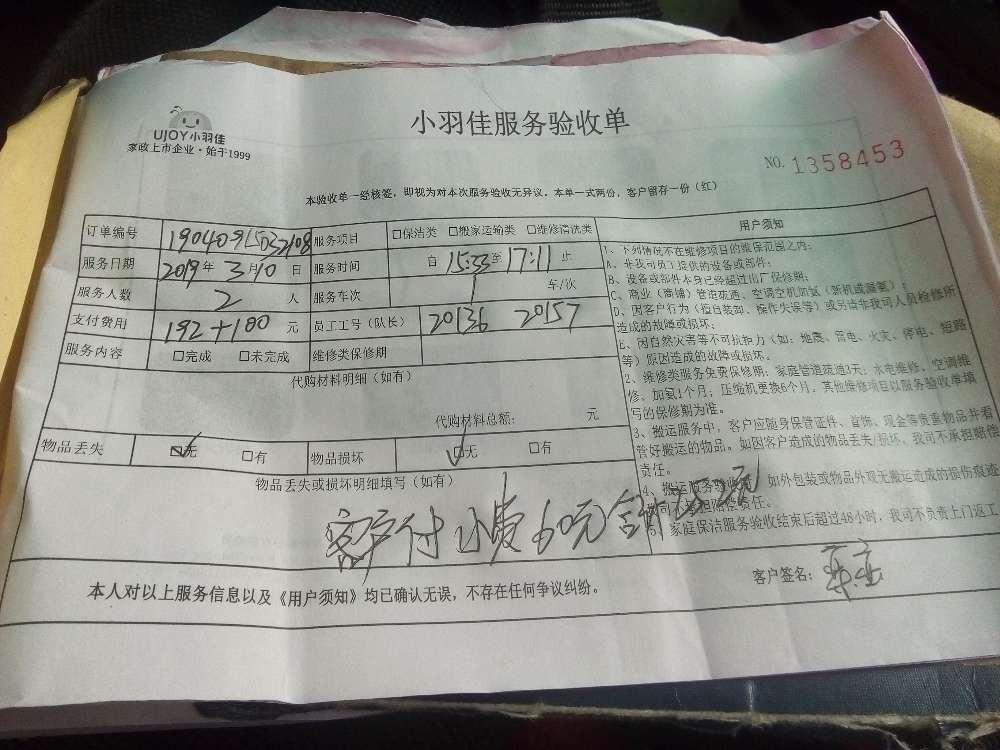 UJOY小羽佳
家政上市企业·始于1999
小羽佳服务验收单
NO. 1358453
本验收单一经核签，即视为对本次服务验收无异议。本单一式两份，客户留存一份（红）
订单编号 19040915032108 服务项目 □保洁类 □搬家运输类 □维修清洗类
服务日期 2019年3月10日 服务时间 自 15:33 至 17:11 止
服务人数 2 人 服务车次 1 车/次
支付费用 192+100 元 员工工号（队长） 20136 20157
服务内容 □完成 □未完成 维修类保修期
代购材料明细（如有）
代购材料总额： 元
物品丢失 □无 □有 物品损坏 □无 □有
物品丢失或损坏明细填写（如有）
客户付小费60元
本人对以上服务信息以及《用户须知》均已确认无误，不存在任何争议纠纷。
用户须知
1、下列情况不在维修项目的维保范围之内：
A、非我司员工提供的设备或部件；
B、设备或部件本身已经超过出厂保修期；
C、商业（商铺）管道疏通、空调空机加氨（新机或漏氨）；
D、因客户行为（擅自装卸、操作失误等）或另请非我司人员检修所
造成的故障或损坏；
E、因自然灾害等不可抗拒力（如：地震、雷电、火灾、停电、短路
等）原因造成的故障或损坏。
2、维修类服务免费保修期：家庭管道疏通3天；水电维修、空调维
修、加氨1个月；压缩机更换6个月，其他维修项目以服务验收单填
写的保修期为准。
3、搬运服务中，客户应随身保管证件、首饰、现金等贵重物品并看
管好搬运的物品。如因客户造成的物品丢失/损坏，我司不承担赔偿
责任。
4、搬运服务验收后，如外包装或物品外观无搬运造成的损伤痕迹
责任。
5、家庭保洁服务验收结束后超过48小时，我司不负责上门返工
客户签名：